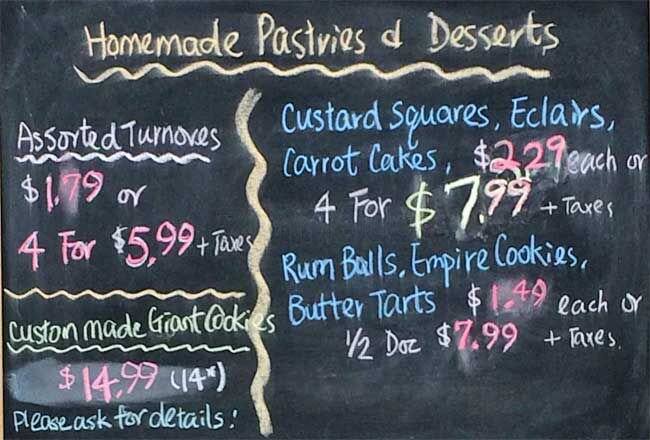 Homemade Pastries & Desserts
Assorted Turnoves
$1.79 or
4 For $5.99 + Taxes
Custon made Giant Cookies
$14.99 (14")
Please ask for details!
Custard Squares, Eclairs,
Carrot Cakes, $2.29 each or
4 For $7.99 + Taxes
Rum Balls, Empire Cookies,
Butter Tarts $1.49 each or
1/2 Doz $7.99 + Taxes.